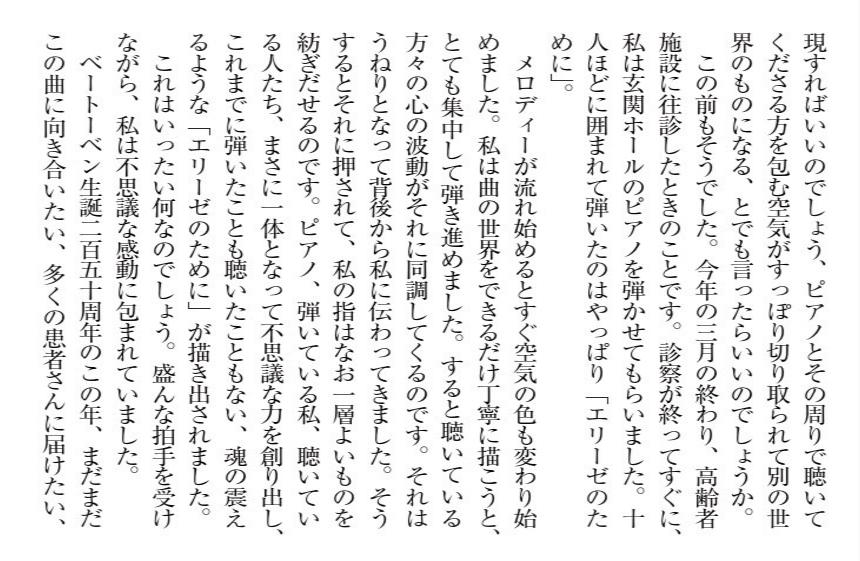 現すればいいのでしょう、ピアノとその周りで聴いて
くださる方を包む空気がすっぽり切り取られて別の世
界のものになる、とでも言ったらいいのでしょうか。
　この前もそうでした。今年の三月の終わり、高齢者
施設に往診したときのことです。診察が終ってすぐに、
私は玄関ホールのピアノを弾かせてもらいました。十
人ほどに囲まれて弾いたのはやっぱり「エリーゼのた
めに」。
　メロディーが流れ始めるとすぐ空気の色も変わり始
めました。私は曲の世界をできるだけ丁寧に描こうと、
とても集中して弾き進めました。すると聴いている
方々の心の波動がそれに同調してくるのです。それは
うねりとなって背後から私に伝わってきました。そう
するとそれに押されて、私の指はなお一層よいものを
紡ぎだせるのです。ピアノ、弾いている私、聴いてい
る人たち、まさに一体となって不思議な力を創り出し、
これまでに弾いたことも聴いたこともない、魂の震え
るような「エリーゼのために」が描き出されました。
　これはいったい何なのでしょう。盛んな拍手を受け
ながら、私は不思議な感動に包まれていました。
　ベートーベン生誕二百五十周年のこの年、まだまだ
この曲に向き合いたい、多くの患者さんに届けたい、